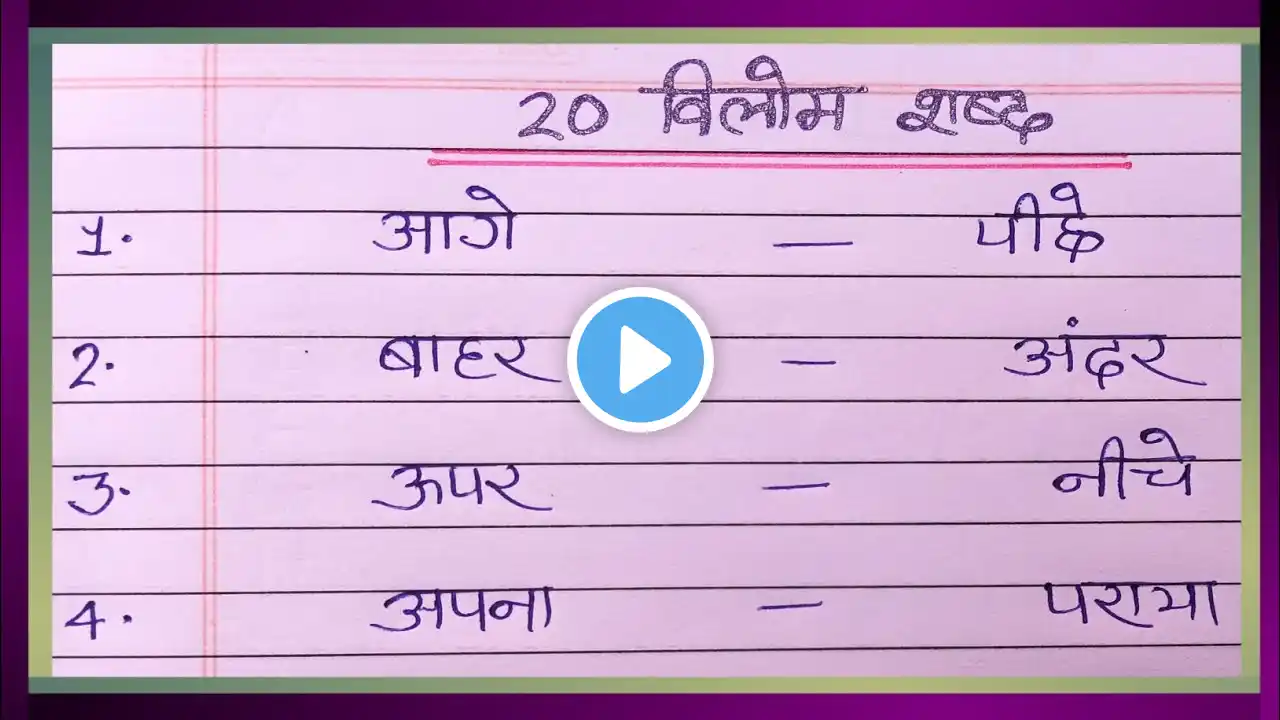 20 विलोम शब्द
1. आगे — पीछे
2. बाहर — अंदर
3. ऊपर — नीचे
4. अपना — पराया